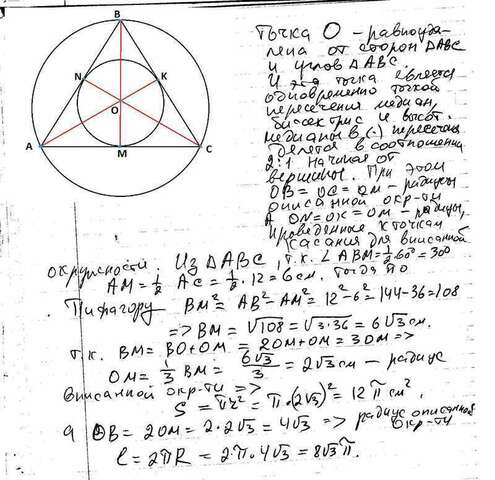 B
N
K
O
A
M
C
Точка О - равноуда-
лена от сторон ΔABC
и углов ΔABC.
И эта точка является
одновременно точкой
пересечения медиан,
биссектрис и высот.
медианы в (·) пересечен
делятся в соотношении
2:1 начиная от
вершины. При этом
OB = OC = OM - радиусы
описанной окр-ти
А ON=OK=OM - радиусы,
проведенные к точкам
касания для вписанной
окружности. Из ΔABC, т.к. ∠ABM=½60°=30°
AM = ½ AC = ½·12=6см. Тогда по
Пифагору BM²=AB²-AM²=12²-6²=144-36=108
=> BM = √108 = √3·36 = 6√3 см.
т.к. BM = BO+OM = 2OM+OM = 3OM =>
OM = ⅓ BM = 6√3/3 = 2√3 см - радиус
вписанной окр-ти =>
S = πr² = π·(2√3)² = 12π см².
а OB = 2OM = 2·2√3 = 4√3 => радиус описанной
окр-ти
ℓ = 2πR = 2·π·4√3 = 8√3π.